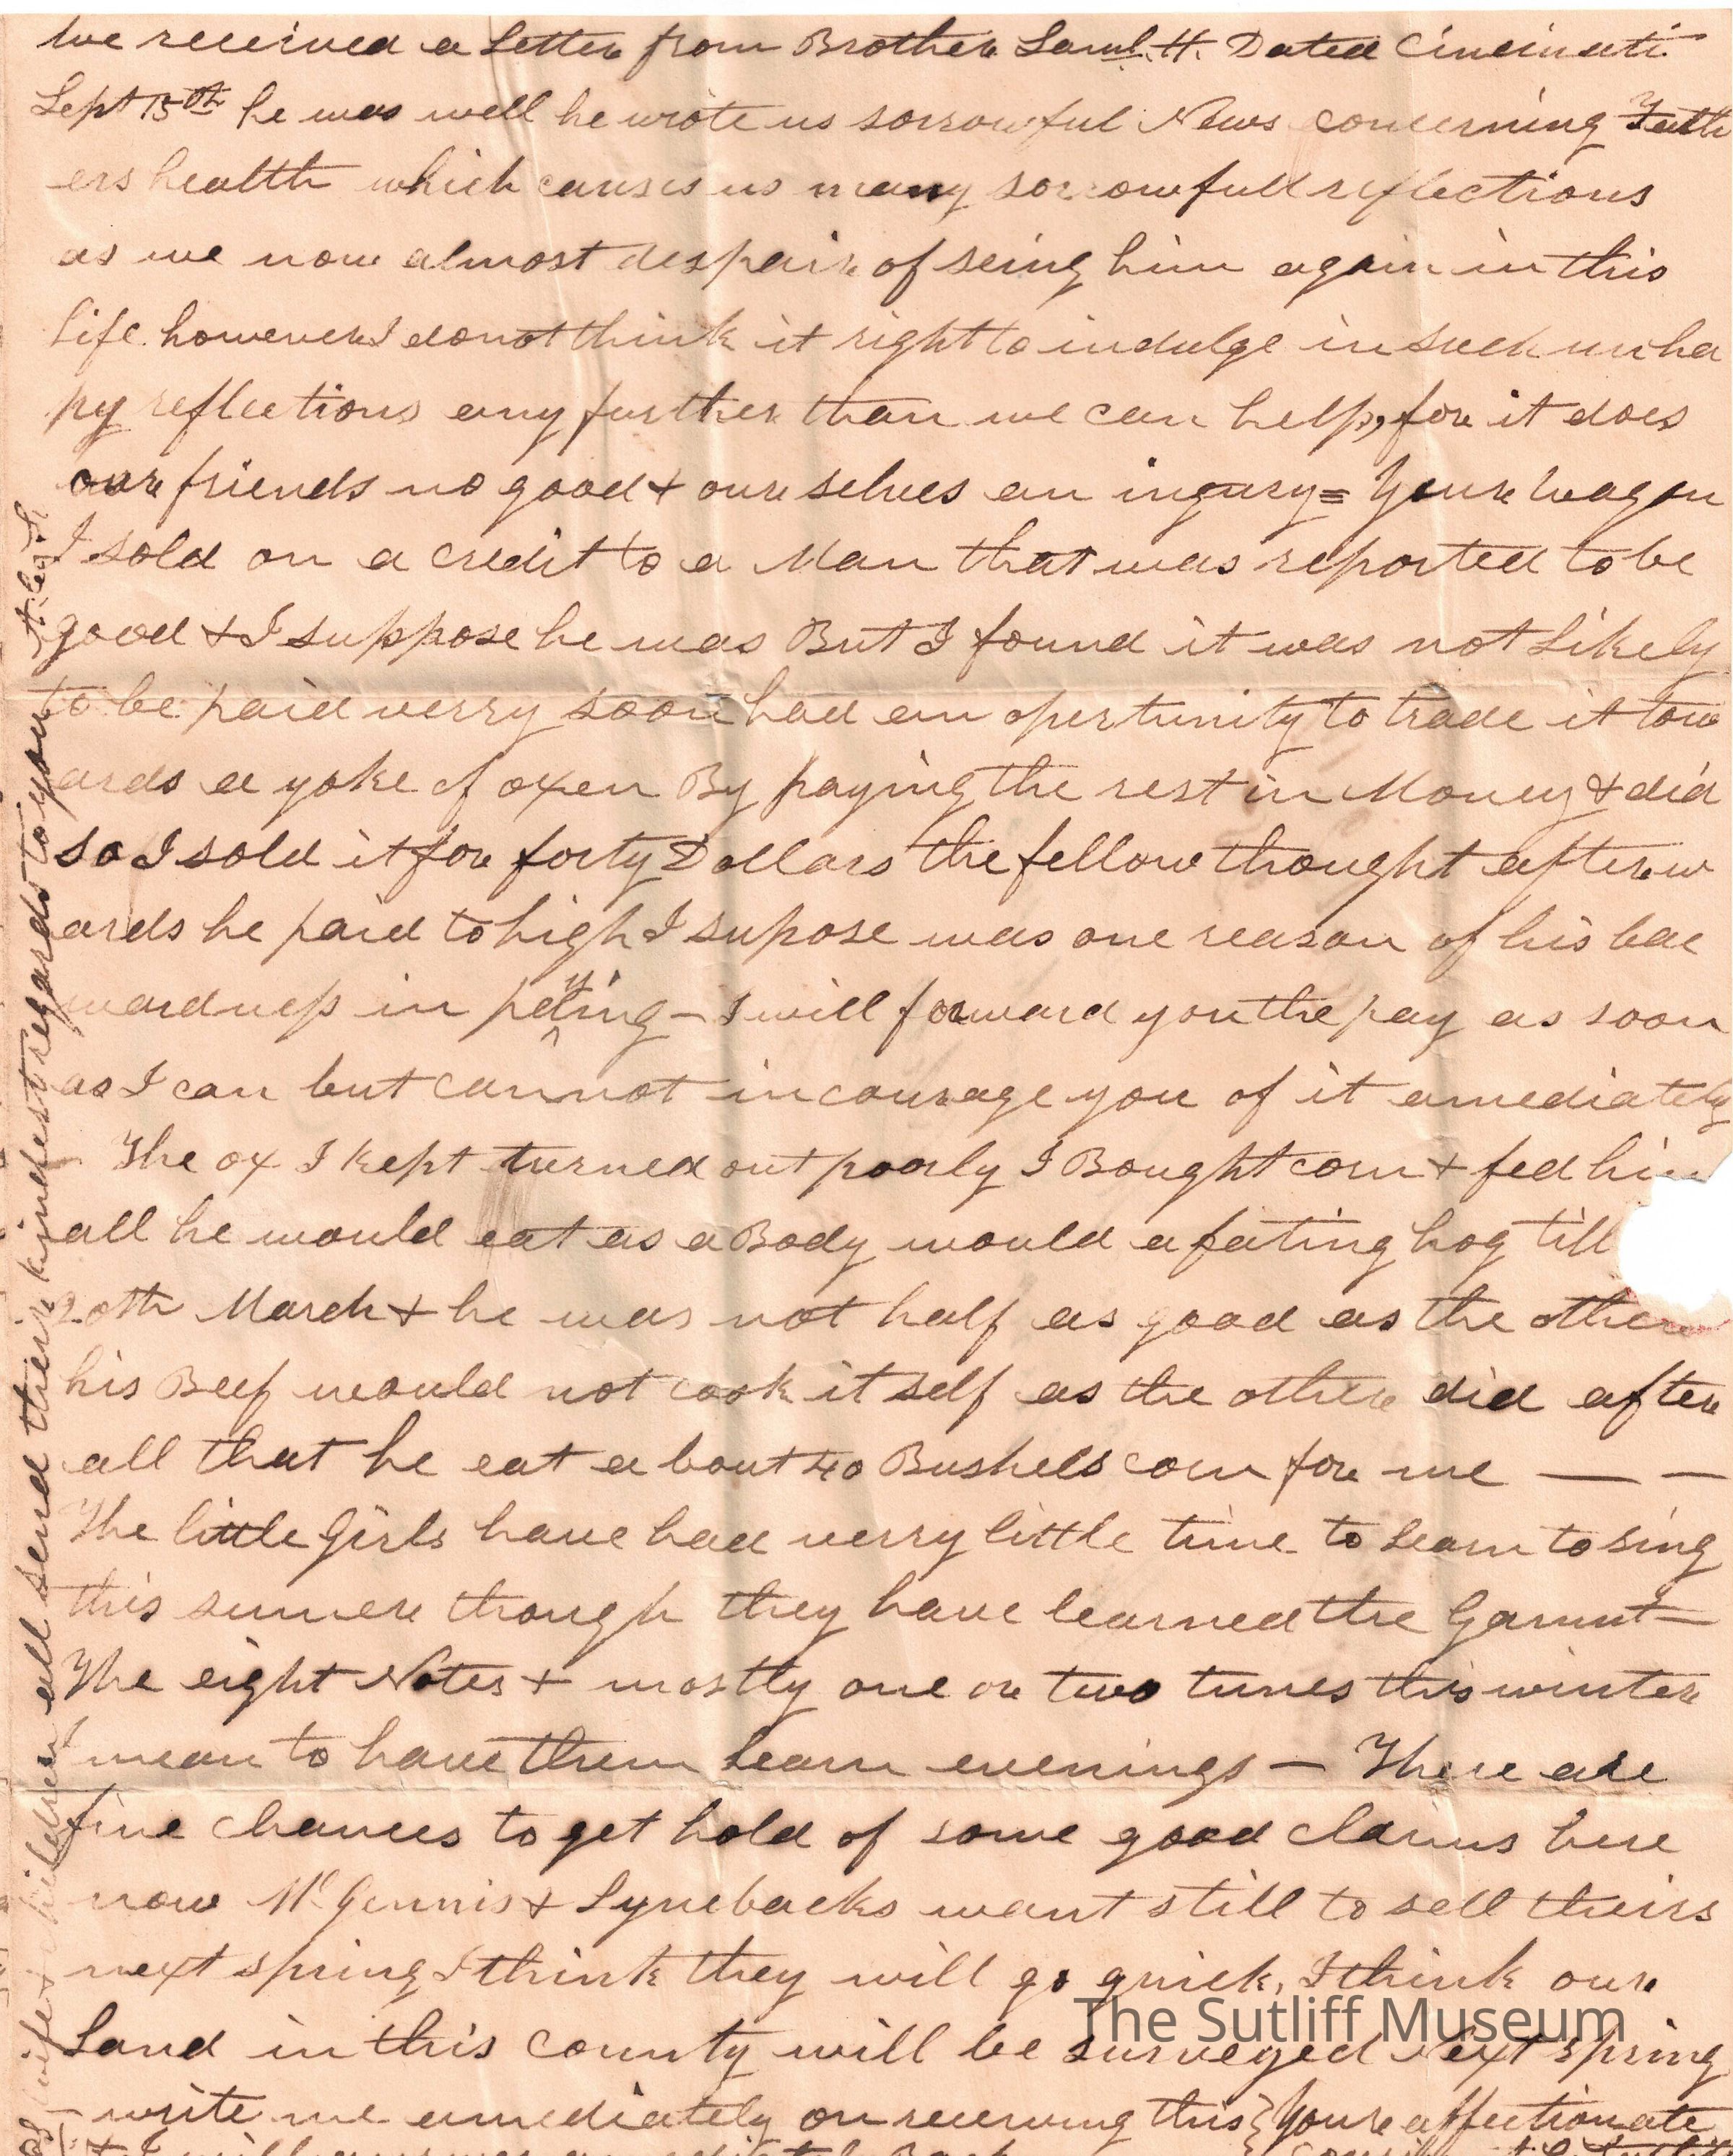 We received a Letter from Brother Saml. H. Dated Cincinati
Sept 15th he was well he wrote us sorrowful News concerning Fath
ers health which causes us many sorrowfull reflections
as we now almost despair of seing him again in this
Life. however I do not think it right to indulge in such unha
py reflections any further than we can help, for it does
our friends no good & ourselves an ingury = Your Wagon
I sold on a credit to a Man that was reported to be
good & I suppose he was But I found it was not Likely
to be paid verry soon had an opertunity to trade it tow
ards a yoke of oxen By paying the rest in Money & did
so I sold it for forty Dollars the fellow thought afterw
ards he paid to high I supose was one reason of his bac
wardness in paying – I will forward you the pay as soon
as I can but cannot incourage you of it amediately
The ox I kept turned out poorly I Bought corn & fed him
all he would eat as a Body would a fating hog till
20th March & he was not half as good as the other
his Beef would not cook it self as the other did after
all that he eat about 40 Bushels corn for me — —
The little Girls have had verry little time to Learn to sing
this sumer though they have learned the Gamut —
The eight Notes & mostly one or two tunes this winter
I mean to have them Learn evenings — There are
fine chances to get hold of some good claims here
now Mc Gennis & Lynebacks want still to sell theirs
next spring I think they will go quick, I think our
Land in this county will be surveyed Next spring
– write me amediately on receiving this } Your affectionate
& I will answer amediately Back
wife & children all send their kindest regards to you
The Sutliff Museum